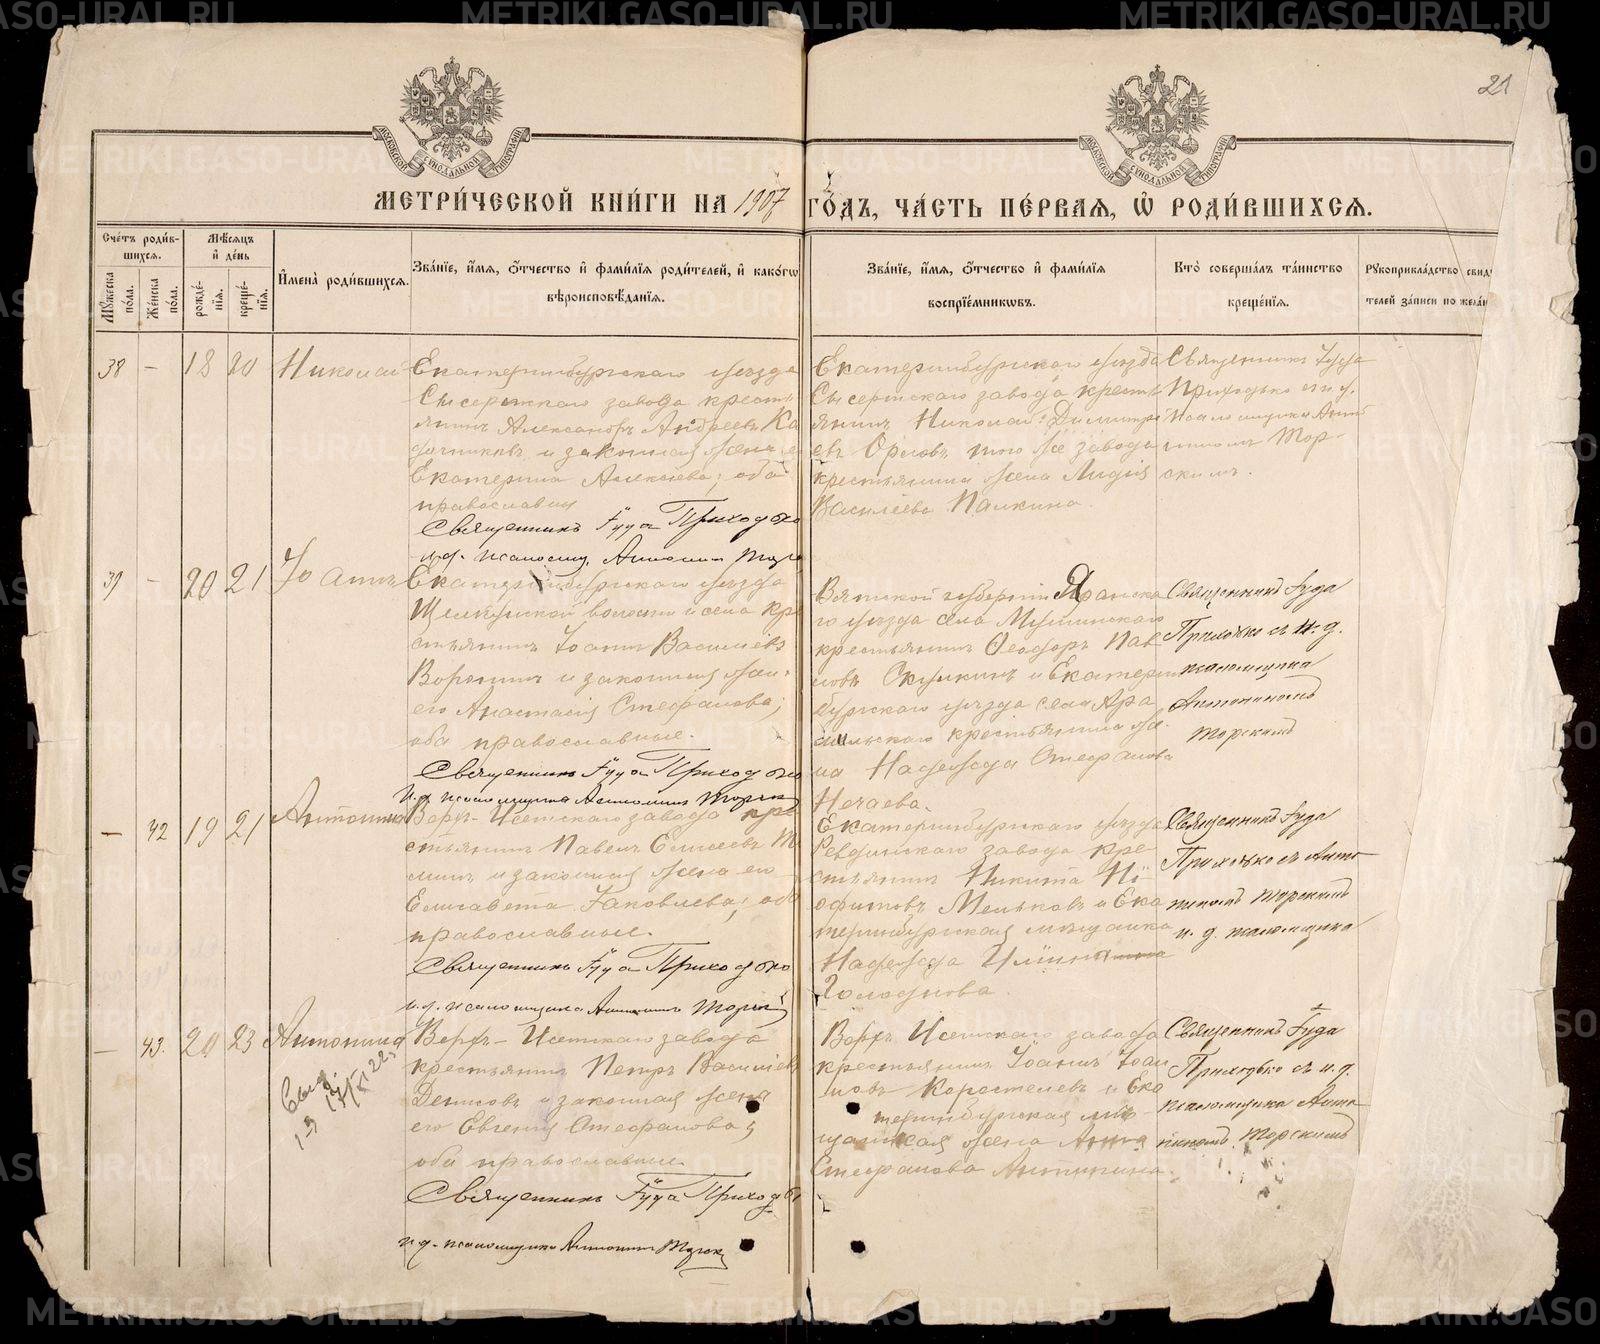 21
МЕТРИ́ЧЕСКОЙ КНИ́ГИ НА 1907 ГО́ДЪ, ЧА́СТЬ ПЕ́РВАЯ, Ѡ РОДИ́ВШИХСЯ.
Сче́тъ роди́вшихся.
Мѣ́сяцъ и де́нь
И́мена̀ роди́вшихся.
Зва́нїе, и́мя, о́тчество и фами́лїя роди́телей, и како́гѡ
вѣроисповѣ́данїя.
Зва́нїе, и́мя, о́тчество и фами́лїя
воспрїе́мникѡвъ.
Кто̀ соверша́лъ та́инство
креще́нїя.
Рꙋкоприкла́дство свидѣ
телей за́писи по жела́н
Мꙋ́жеска по́ла.
Же́нска по́ла.
рожде́нїя.
креще́нїя.
38 — 18 20 Николай
Екатеринбургскаго уезда
Сысертскаго завода кресть
янинъ Александръ Андреевъ
и законная жена е
Екатерина Алексѣева; оба
православные
Священникъ Іуда Приходько
и.д. псаломщ. Антонин Торс
Екатеринбургскаго уезда
Сысертскаго завода кресть
янинъ Николай Димитрі
евъ Орловъ, того же завода
крестьянина жена Лидія
Василіева Палкина.
Священникъ Іуда
Приходько съ и. д.
псаломщика Анто
ниномъ Тор-
скимъ.
39 — 20 21 Іоаннъ
Екатеринбургскаго уезда
Щелкунской волости и села кре
стьянинъ Іоаннъ Василіевъ
Воронинъ и законная жена
его Анастасія Стефанова;
оба православные.
Священникъ Іуда Приходько
и.д. псаломщика Антонинъ Торск
Вятской губерніи Яранска
го уезда села
крестьянинъ Ѳеодоръ Пав
ловъ Окулкинъ и Екатерин
бургскаго уезда села Ара
мильскаго крестьянина же
на Надежда Стефанова
Нечаева.
Священникъ Іуда
Приходько съ и. д.
псаломщика
Антониномъ
Торскимъ
— 42 19 21 Антонина
Верх-Исетскаго завода кре
стьянинъ Павелъ Елисеевъ
и законная жена его
Елисавета Іаковлева; оба
православные.
Священникъ Іуда Приходько
и.д. псаломщика Антонинъ Торск
Екатеринбургскаго уезда
Ревдинскаго завода кре
стьянинъ Никита Не
офитовъ Мельковъ и Ека
теринбургская мѣщанка
Надежда
Голоднова.
Священникъ Іуда
Приходько съ Анто
ниномъ Торскимъ
и. д. псаломщика
— 43. 20 23 Антонина
Верхъ-Исетскаго завода
крестьянинъ Петръ Василіевъ
Денисовъ и законная жена
его Евгенія Стефанова;
оба православные.
Священникъ Іуда Приходь
и.д. псаломщика Антонинъ Торск
Верхъ Исетскаго завода
крестьянинъ Іоаннъ Іоан
новъ Коростелевъ и Ека
теринбургская мѣ-
щанская жена Анна
Стефанова Антипина.
Священникъ Іуда
Приходько съ и. д.
псаломщика Анто
ниномъ Торскимъ
METRIKI.GASO-URAL.RU